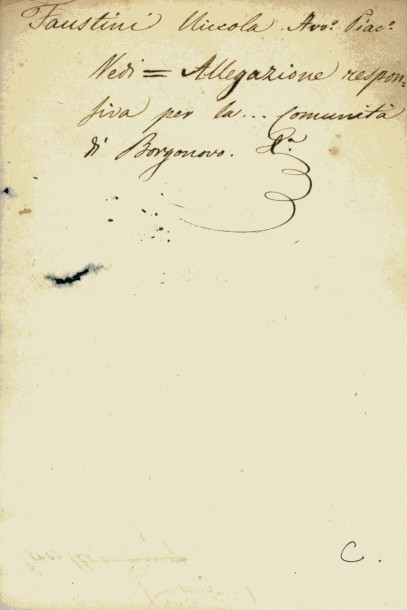 Faustini Niccola Avo.º Piac.º
Vedi = Allegazione respon=
siva per la... Comunità
di Borgonovo.
C.